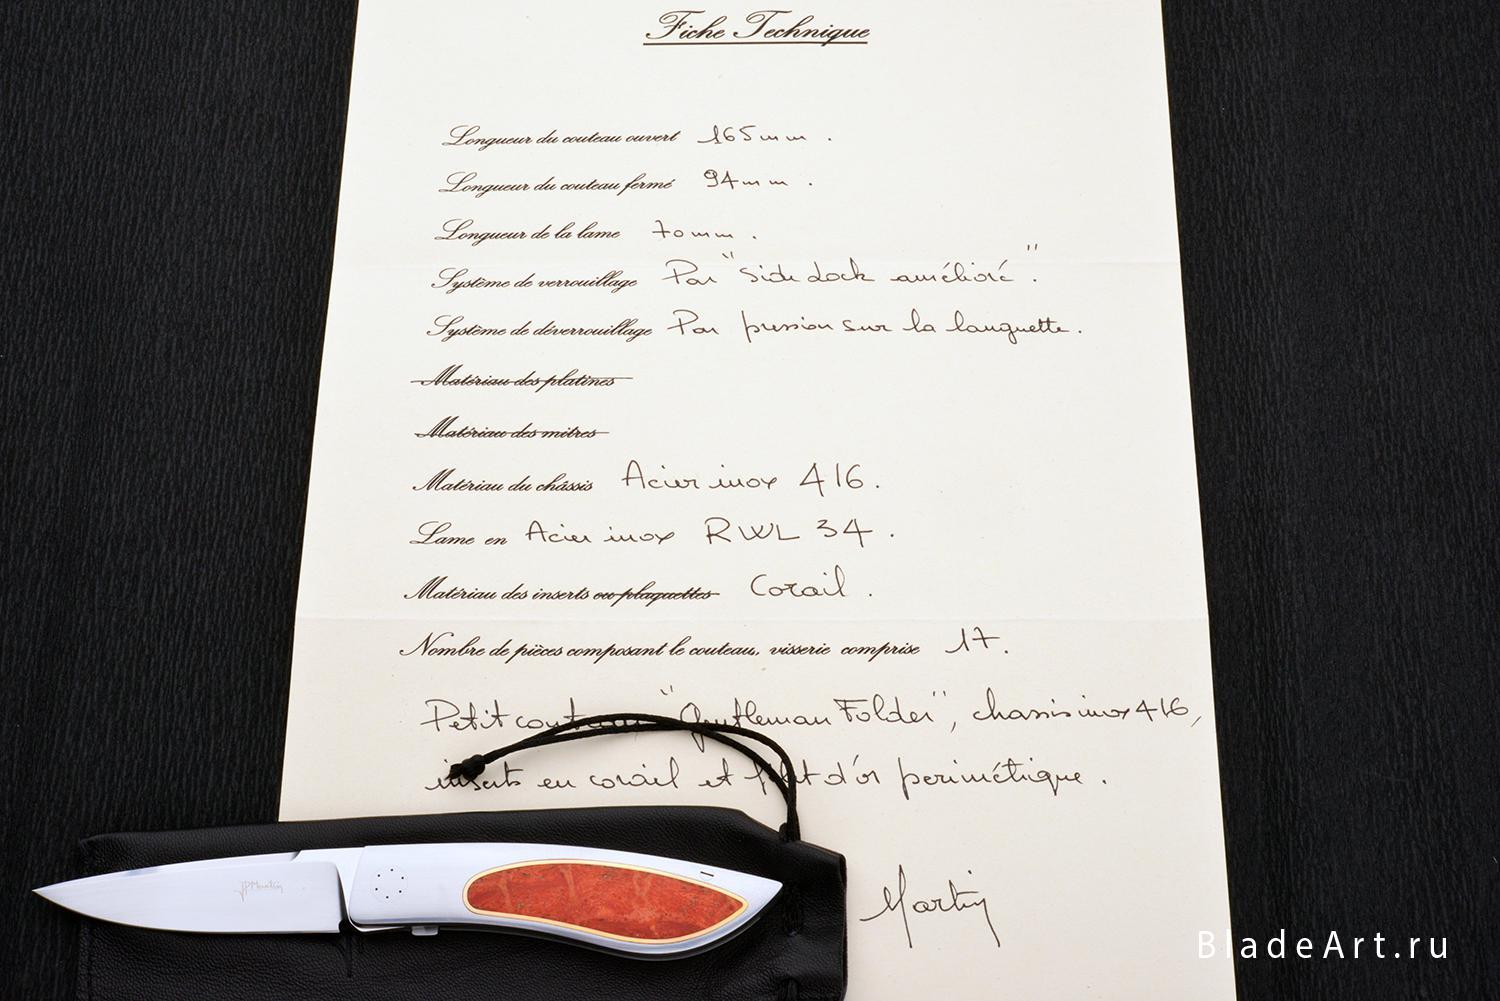 Fiche Technique
Longueur du couteau ouvert 165mm.
Longueur du couteau fermé 94mm.
Longueur de la lame 70mm.
Système de verrouillage Par "Side Lock amélioré".
Système de déverrouillage Par pression sur la languette.
Matériau des platines
Matériau des mitres
Matériau du châssis Acier inox 416.
Lame en Acier inox RWL 34.
Matériau des inserts ou plaquettes Corail.
Nombre de pièces composant le couteau, visserie comprise 17.
Petit couteau "Gentleman Folder", chassis inox 416,
inserts en corail et filet d'or perimétrique.
JPMartin
Martin
BladeArt.ru